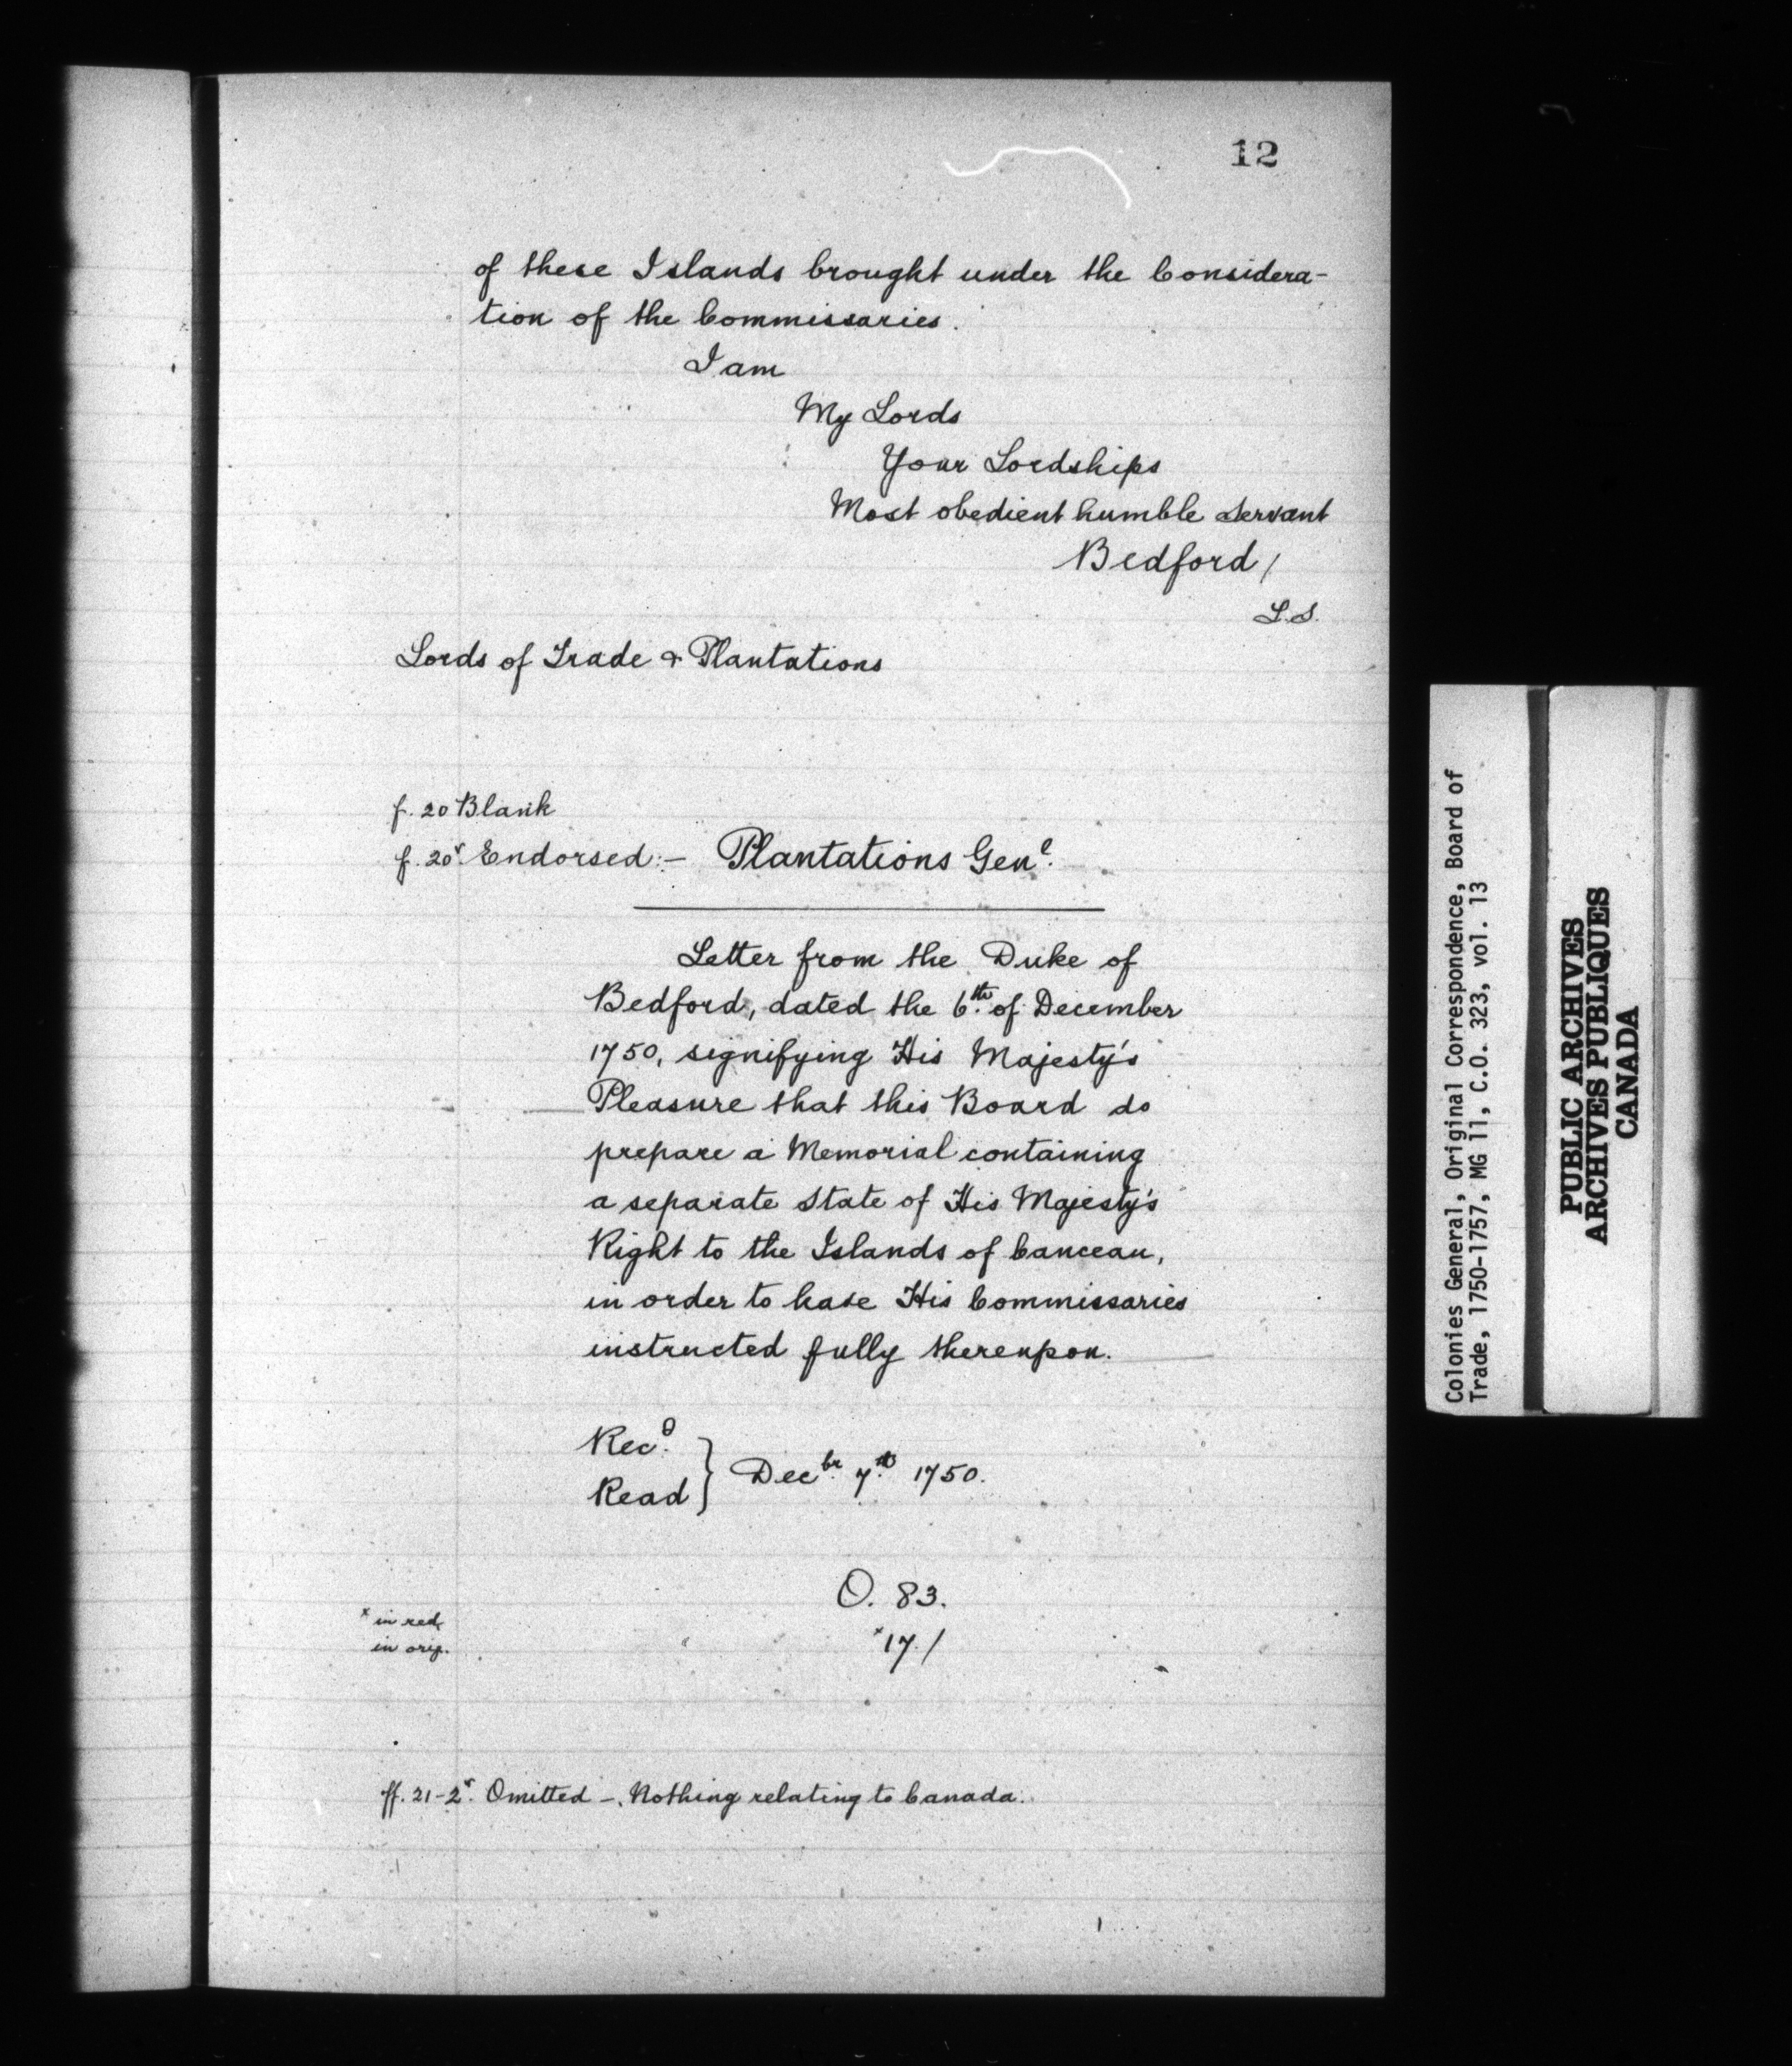 12
of these Islands brought under the Considera-
tion of the Commissaries.
I am
My Lords
Your Lordships
Most obedient humble Servant
Bedford /
L.S.
Lords of Trade & Plantations
f. 20 Blank
f. 20v. Endorsed:- Plantations Genl.
Letter from the Duke of
Bedford, dated the 6th of December
1750, signifying His Majesty's
Pleasure that this Board do
prepare a Memorial containing
a separate State of His Majesty's
Right to the Islands of Canceau,
in order to have His Commissaries
instructed fully thereupon.
Recd.
Read } Decbr. 7th 1750.
O. 83.
x in red
in orig.
x17./
ff. 21-2v. Omitted -. Nothing relating to Canada.
Colonies General, Original Correspondence, Board of
Trade, 1750-1757, MG 11, C.O. 323, vol. 13
PUBLIC ARCHIVES
ARCHIVES PUBLIQUES
CANADA